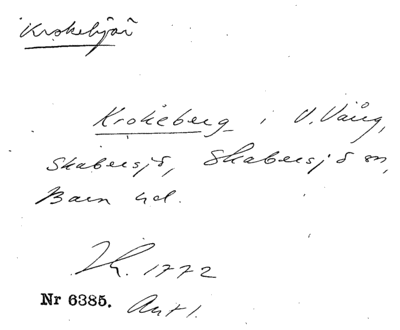 Krokebjär
Krokeberg i V. Vång,
Skabersjö, Skabersjö sn,
Bara hd.
Lk. 1772
Nr 6385. Akt 1.